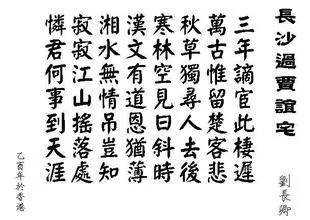 長沙過賈誼宅
劉長卿
三年謫官此棲遲
萬古惟留楚客悲
秋草獨尋人去後
寒林空見日斜時
漢文有道恩猶薄
湘水無情吊豈知
寂寂江山搖落處
憐君何事到天涯
乙酉年於香港